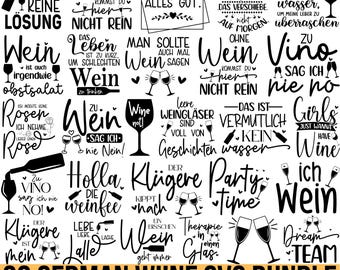 KEINE
LÖSUNG
ALLES GUT.
HIER
NICHT REIN
DAS VERSCHIEBE
NICHT
AUF MORGEN
WEIN,
UM MEINE LEBER ZU
überraschen
Wein
ist auch
irgendwie
obstsalat
Das
Leben
IST ZU KURZ
UM SCHLECHTEN
Wein
zu trinken
MAN SOLLTE
AUCH MAL
Wein
SAGEN
OHNE
Wein
KOMMST DU
hier
NICHT REIN
ZU
Vino
SAG ICH
nie no
ICH MÖCHTE KEINE
Rosen
ICH NEHME
Rosé
ZU
Wein
SAG ICH
nie Nein!
Wine
not!
leere
WEINGLÄSER
SIND
VOLL VON
Geschichten
DAS IST
VERMUTLICH
KEIN
wasser
Girls
JUST WANNA
HAVE
Wine
ZU
VINO
sag ich
nie no!
Holla
DIE
weinfee
DER
Klügere
KIPPT
nach
Party
time
ich
Wein
DER
Klügere
ist
mein
LEBE
LIEBE
Lalle
EIN
BISSCHEN
Wein
geht immer
Therapie
in einem
Glas
Dream
TEAM
GERMAN WIINE SVG BUNDLE